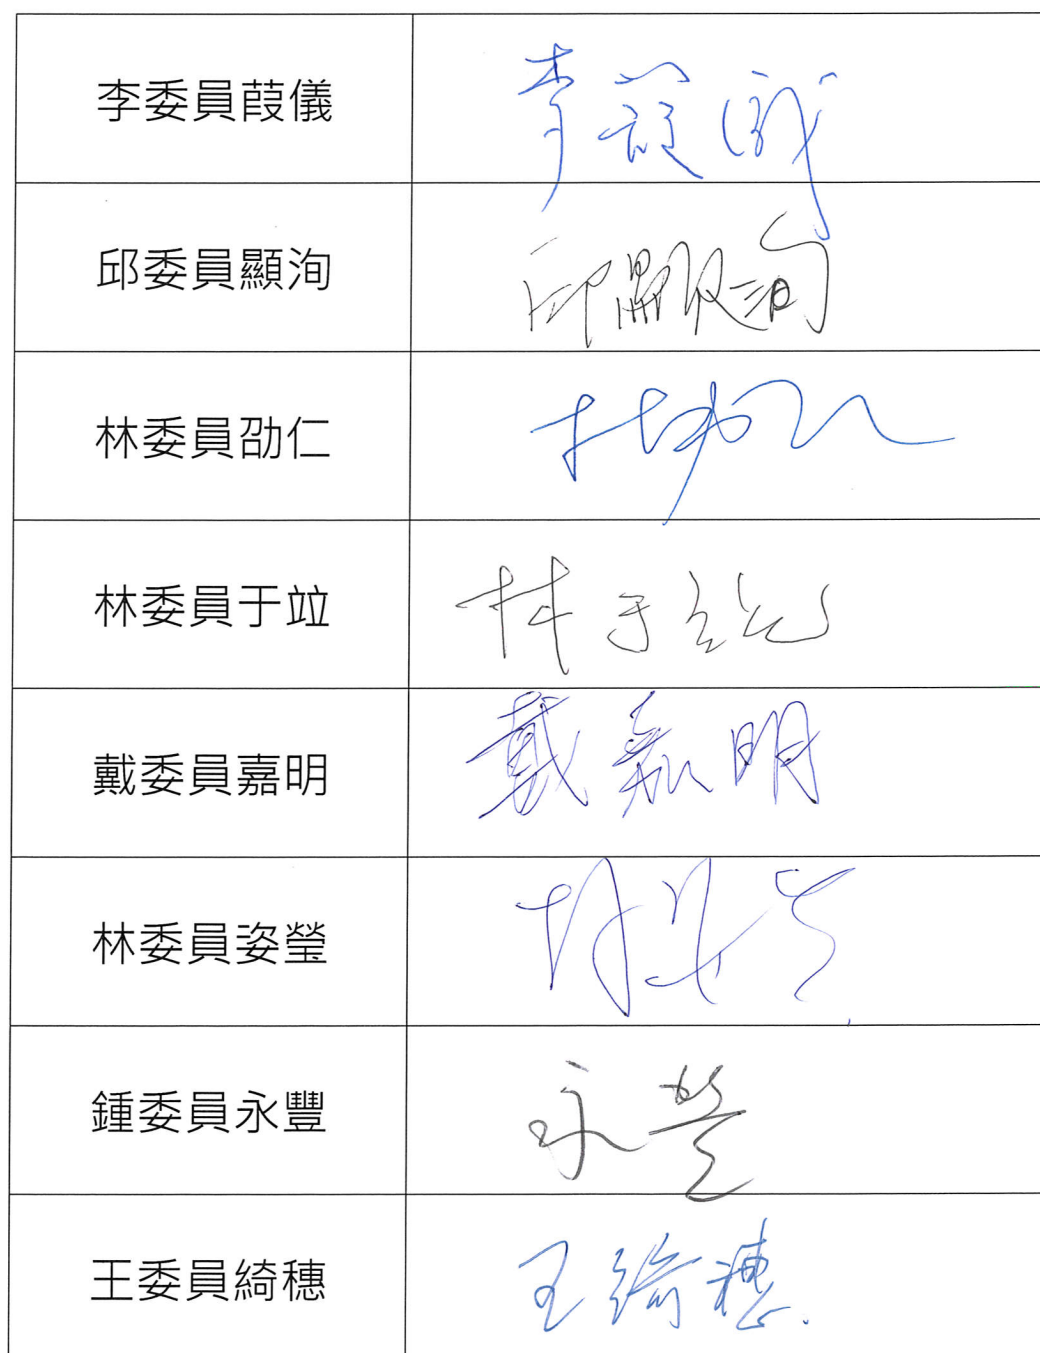 李委員葭儀 李葭儀
邱委員顯洵 邱顯洵
林委員劭仁 林劭仁
林委員于竝 林于竝
戴委員嘉明 戴嘉明
林委員姿瑩
鍾委員永豐 永豐
王委員綺穗 王綺穗